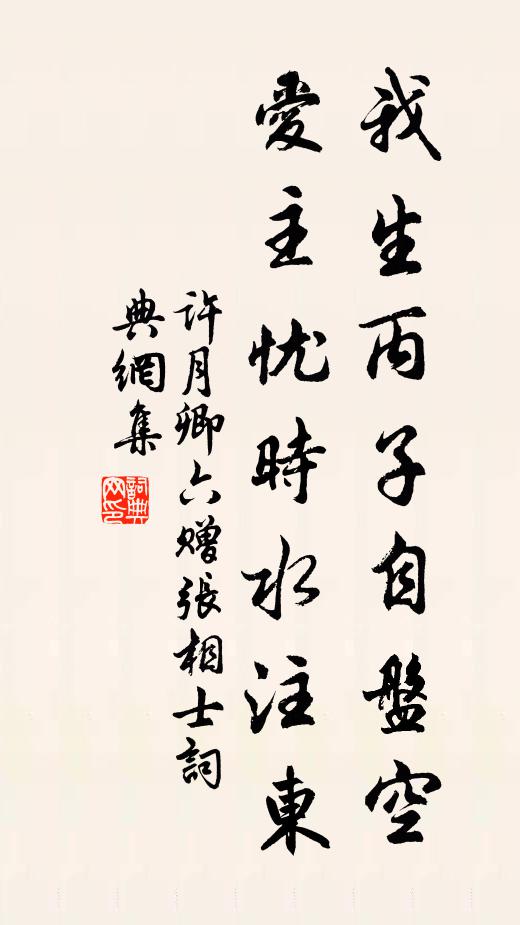 我生丙子自盤空
愛主忧時水注東
許月卿六赠張相士詞
典網集
詞典网印